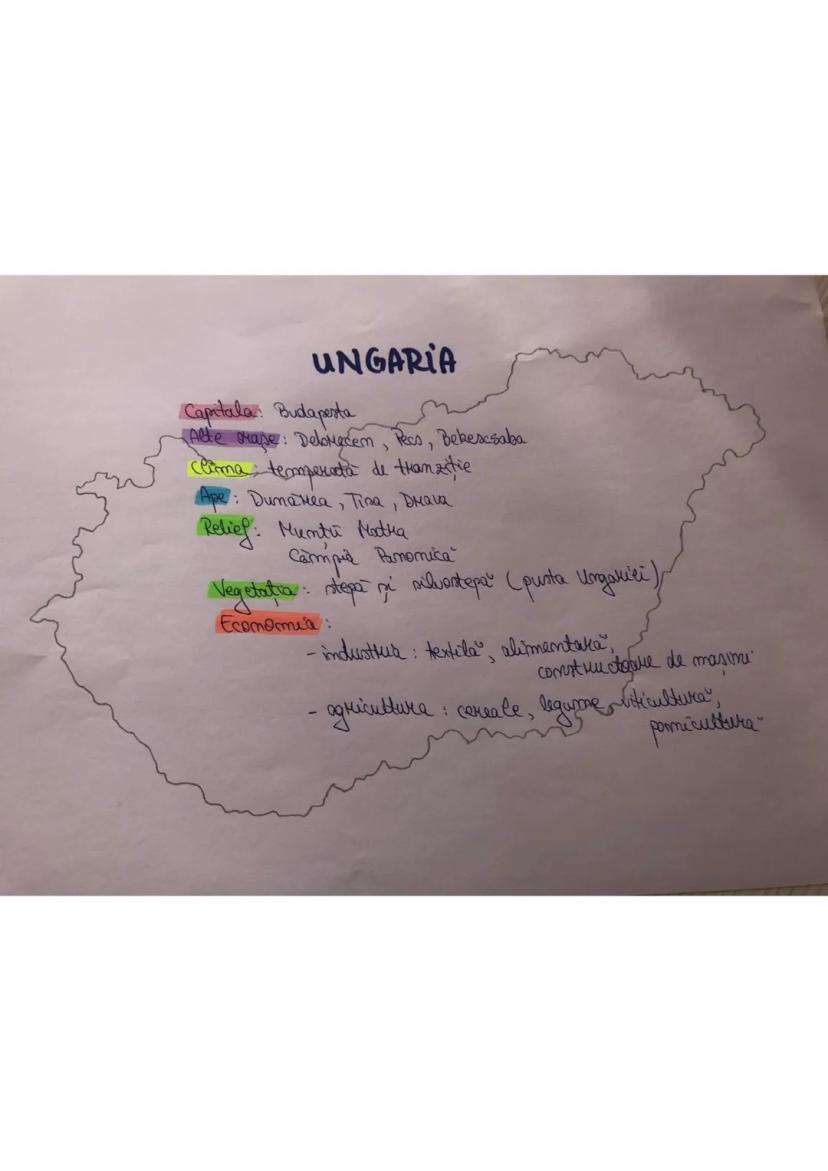 UNGARIA
Capitala: Budapesta
Alte orașe: Debrecem, Pecs, Bekescsaba
Clima: temperată de tranziție
Ape: Dunărea, Tisa, Drava
Relief: Munții Matra
Câmpia Panonică
Vegetația: stepă și silvostepă (pusta Ungariei)
Economia:
- industria: textilă, alimentară,
constructoare de mașini
- agricultura: cereale, legume, viticultură,
pomicultură